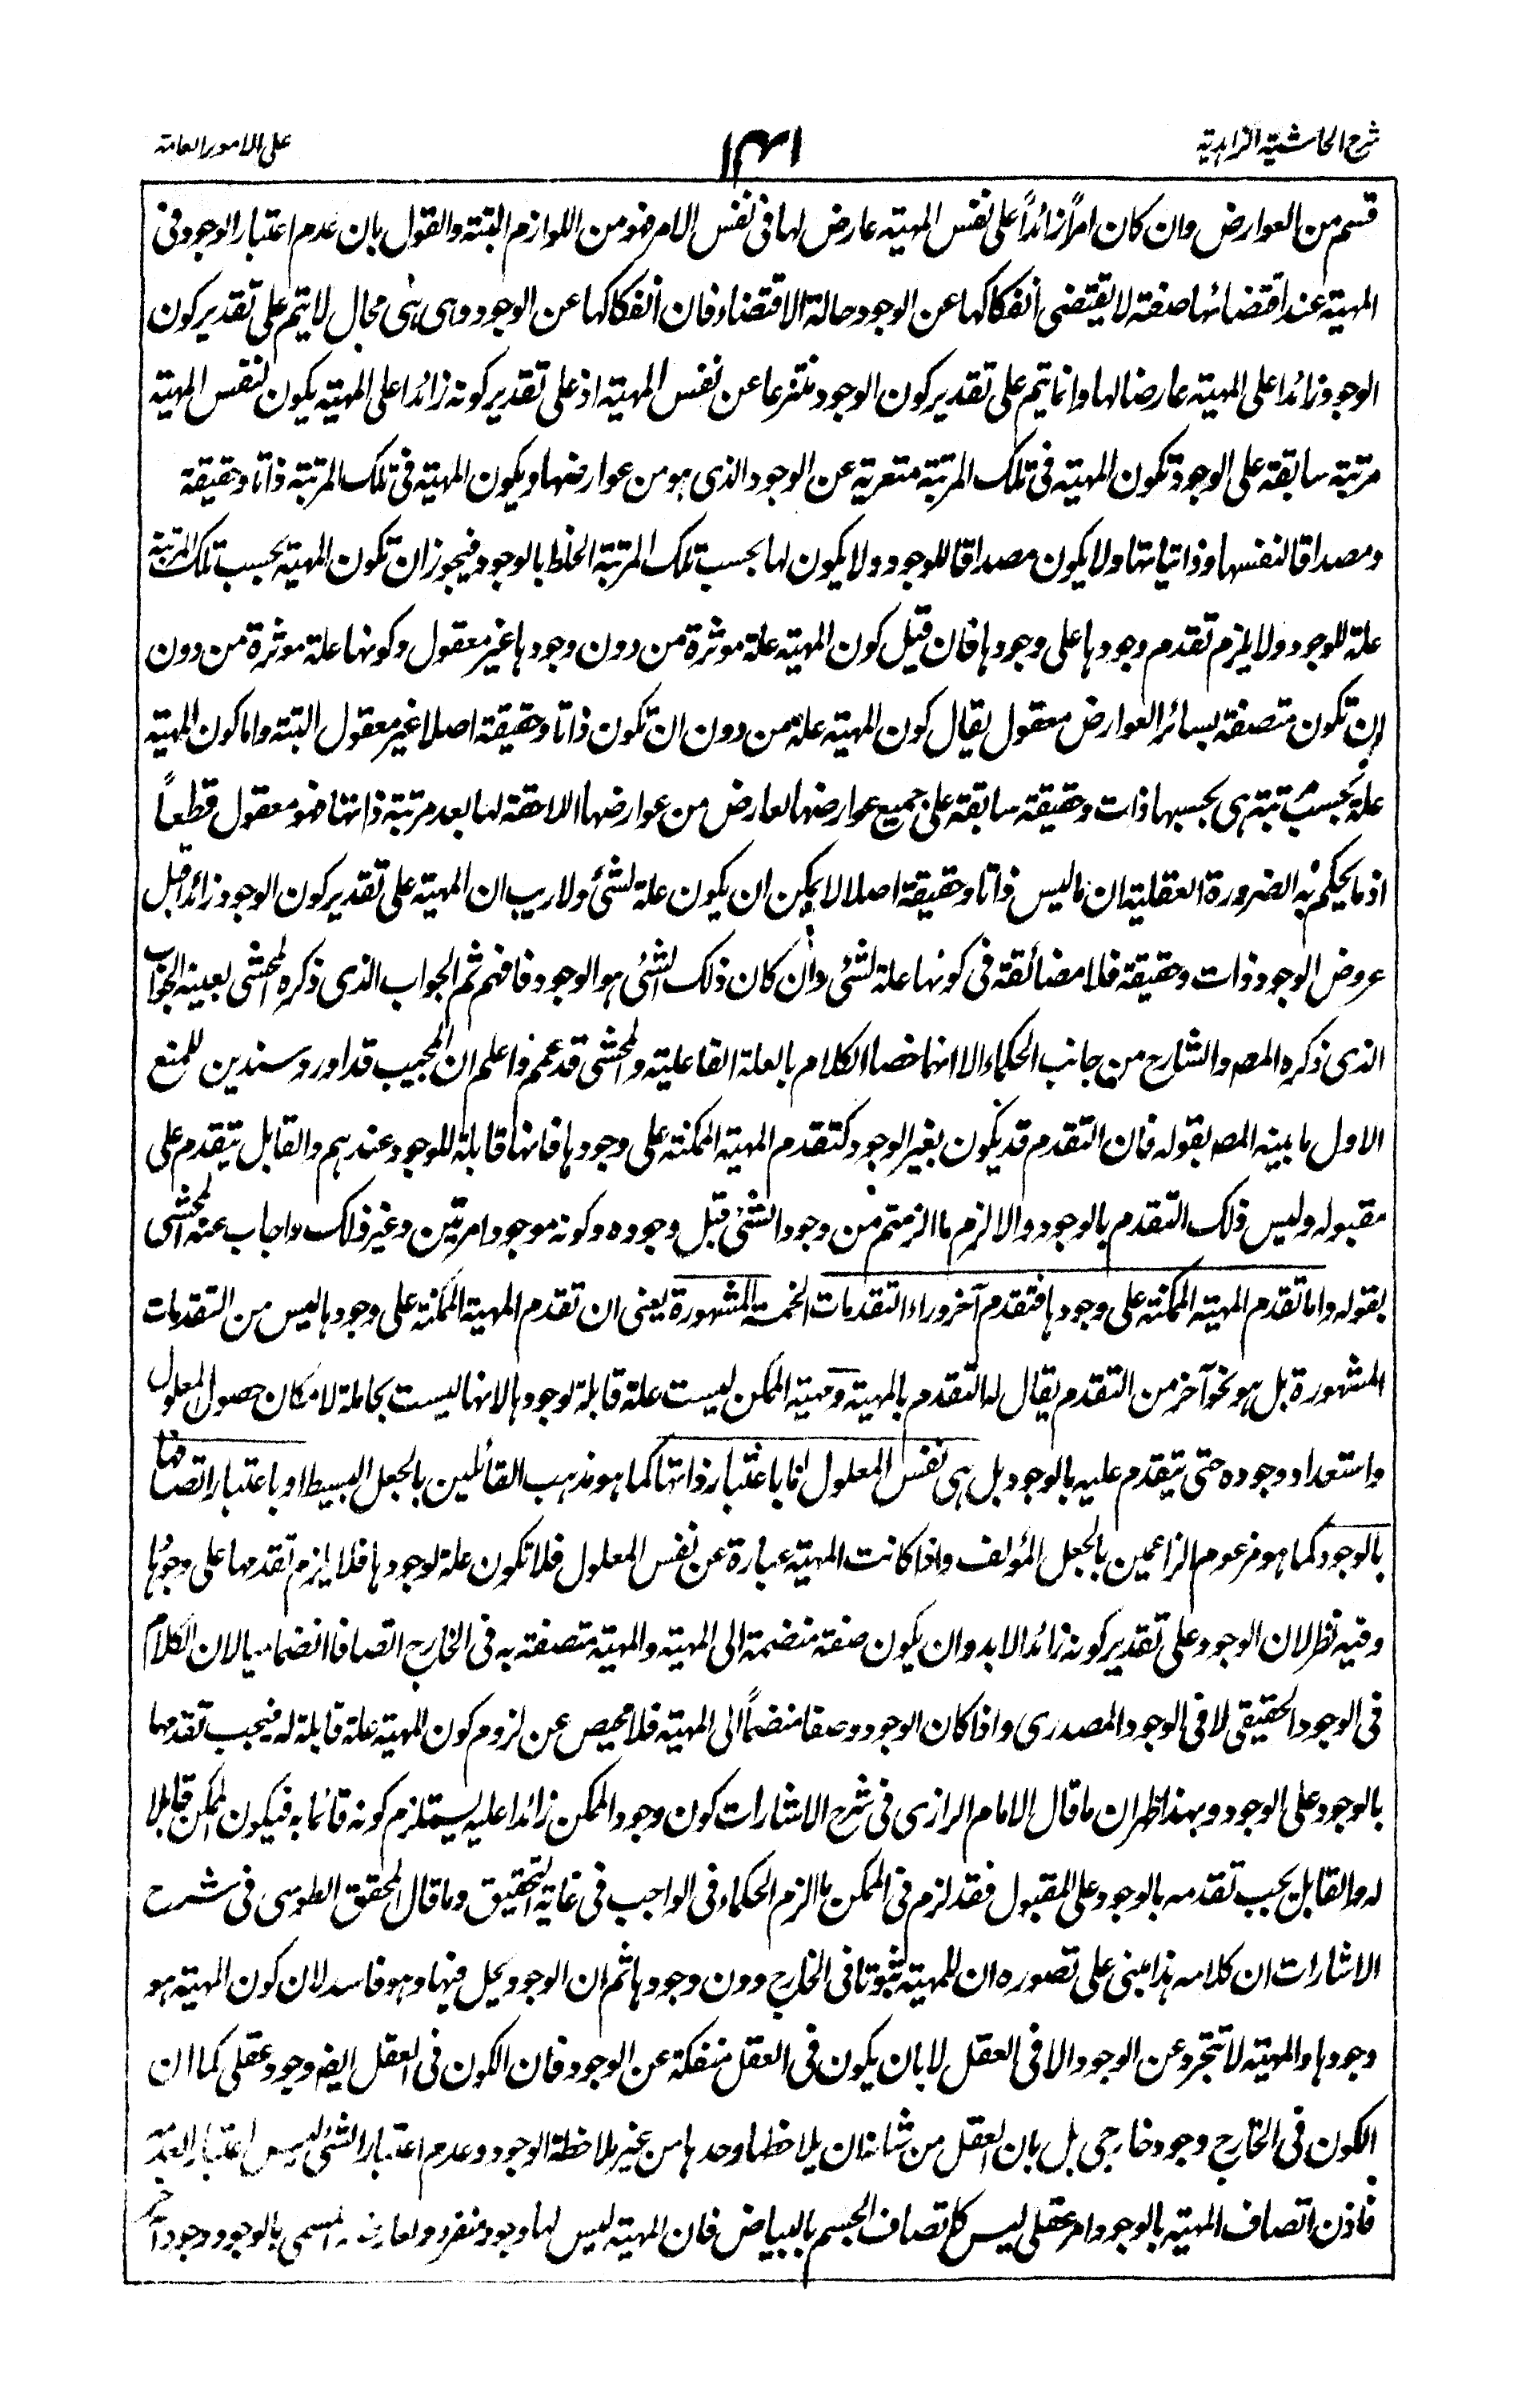 شرح الحاشية الزاهدية
١٤١
على الامور العامة
قسم من العوارض وان كان امراً زائداً على نفس المهية عارض لها فى نفس الامر فهو من اللوازم البتة والقول بان عدم اعتبار الوجود فى
المهية عند اقتضائها صفة لا يقتضى انفكاكها عن الوجود حالة الاقتضاء فان انفكاكها عن الوجود وهى هى محال لا يتم على تقدير كون
الوجود زائدا على المهية عارضا لها وانما يتم على تقدير كون الوجود منتزعا عن نفس المهية اذ على تقدير كونه زائدا على المهية يكون لنفس المهية
مرتبة سابقة على الوجود تكون المهية فى تلك المرتبة متعرية عن الوجود الذى هو من عوارضها ويكون المهية فى تلك المرتبة ذاتا وحقيقة
ومصداقا لنفسها وذاتياتها ولا يكون مصداقا للوجود ولا يكون لها بحسب تلك المرتبة الخلط بالوجود فيجوز ان تكون المهية بحسب تلك المرتبة
علة للوجود ولا يلزم تقدم وجودها على وجودها فان قيل كون المهية علة موثرة من دون وجودها غير معقول وكونها علة موثرة من دون
ان تكون متصفة بسائر العوارض معقول يقال كون المهية علة من دون ان تكون ذاتا وحقيقة اصلا غير معقول البتة واما كون المهية
علة بحسب مرتبة هى بحسبها ذات وحقيقة سابقة على جميع عوارضها لعارض من عوارضها اللاحقة لها بعد مرتبة ذاتها فهو معقول قطعاً
اذ ما يحكم به الضرورة العقلية ان ما ليس ذاتا وحقيقة اصلا لا يمكن ان يكون علة لشئ ولا ريب ان المهية على تقدير كون الوجود زائدا قبل
عروض الوجود ذات وحقيقة فلا مضائقة فى كونها علة لشئ وان كان ذلك الشئ هو الوجود فافهم ثم الجواب الذى ذكره المحشى بعينه الجواب
الذى ذكره المصـ والشارح من جانب الحكماء الا انهما خصا الكلام بالعلة الفاعلية والمحشى قد عمم واعلم ان المجيب قد اورد سندين للمنع
الاول ما بينه المصـ بقوله فان التقدم قد يكون بغير الوجود كتقدم المهية الممكنة على وجودها فانها قابلة للوجود عندهم والقابل يتقدم على
مقبوله وليس ذلك التقدم بالوجود والا لزم ما الزمتم من وجود الشئ قبل وجوده وكونه موجودا مرتين وغير ذلك واجاب عنه المحشى
بقوله واما تقدم المهية الممكنة على وجودها فتقدم آخر وراء التقدمات الخمسة المشهورة يعنى ان تقدم المهية الممكنة على وجودها ليس من التقدمات
المشهورة بل هو نحو آخر من التقدم يقال له التقدم بالمهية ومهية الممكن ليست علة قابلة لوجودها لانها ليست بحاملة لامكان حصول المعلول
واستعداد وجوده حتى يتقدم عليه بالوجود بل هى نفس المعلول اما باعتبار ذاتها كما هو مذهب القائلين بالجعل البسيط او باعتبار اتصافها
بالوجود كما هو مزعوم الزاعمين بالجعل المؤلف واذا كانت المهية عبارة عن نفس المعلول فلا تكون علة لوجودها فلا يلزم تقدمها على وجودها
وفيه نظر لان الوجود على تقدير كونه زائدا لابد وان يكون صفة منضمة الى المهية والمهية متصفة به فى الخارج اتصافا انضماميا لان الكلام
فى الوجود الحقيقى لا فى الوجود المصدرى واذا كان الوجود وصفا منضماً الى المهية فلا محيص عن لزوم كون المهية علة قابلة له فيجب تقدمها
بالوجود على الوجود وبهذا ظهر ان ما قال الامام الرازى فى شرح الاشارات كون وجود الممكن زائدا عليه يستلزم كونه قائما به فيكون الممكن قابلا
له والقابل يجب تقدمه بالوجود على المقبول فقد لزم فى الممكن ما الزم الحكماء فى الواجب فى غاية التحقيق وما قال المحقق الطوسى فى شرح
الاشارات ان كلامه هذا مبنى على تصوره ان للمهية ثبوتا فى الخارج دون وجودها ثم ان الوجود يحل فيها وهو فاسد لان كون المهية هو
وجودها والمهية لا تتجرد عن الوجود الا فى العقل لا بان يكون فى العقل منفكة عن الوجود فان الكون فى العقل ايضـ وجود عقلى كما ان
الكون فى الخارج وجود خارجى بل بان العقل من شانه ان يلاحظها وحدها من غير ملاحظة الوجود وعدم اعتبار الشئ ليس اعتبار العدمه
فاذن اتصاف المهية بالوجود امر عقلى ليس كاتصاف الجسم بالبياض فان المهية ليس لها وجود منفرد ولعارضه المسمى بالوجود وجود آخر